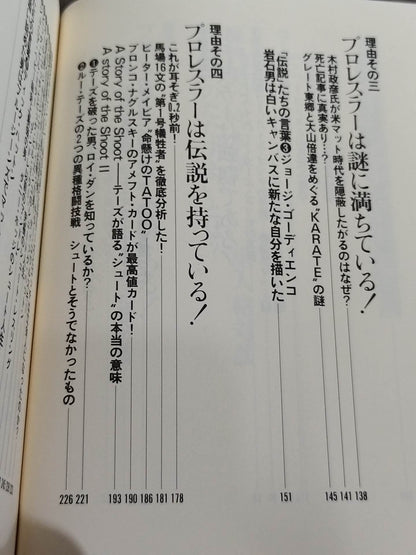 理由その三
プロレスラーは謎に満ちている!
木村政彦氏が米マット時代を隠蔽したがるのはなぜ? 138
死亡記事に真実あり…? 141
グレート東郷と大山倍達をめぐる"KARATE"の謎 145
「伝説」たちの言葉❸ジョージ・ゴーディエンコ
岩石男は白いキャンバスに新たな自分を描いた 151
理由その四
プロレスラーは伝説を持っている!
これが耳そぎ0.2秒前! 178
馬場16文の"第1号犠牲者"を徹底分析した! 181
ピーター・メイビア"命懸けのTATOO" 186
ブロンコ・ナグルスキーのアメフト・カードが最高値カード! 190
A story of the Shoot──テーズが語る"シュート"の本当の意味 193
A story of the Shoot II
❶テーズを破った男、ロイ・ダンを知っているか? 221
❷ルー・テーズの2つの異種格闘技戦 シュートとそうでなかったもの 226